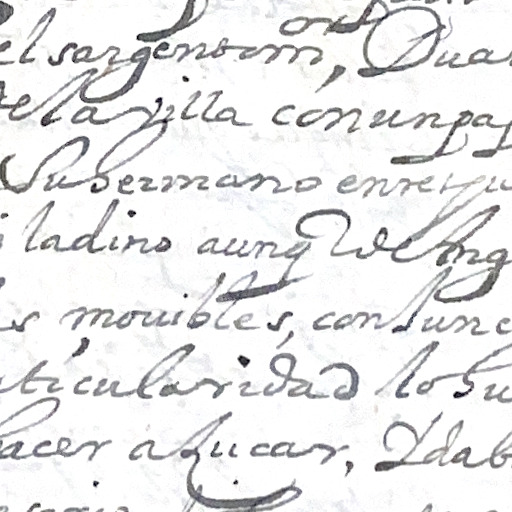 el sargentom, Dua
de la villa con un pa
Su hermano enre
ladino aunq de
s, mouibles, con su
ticularidad lo hu
hacer açucar, Y dab